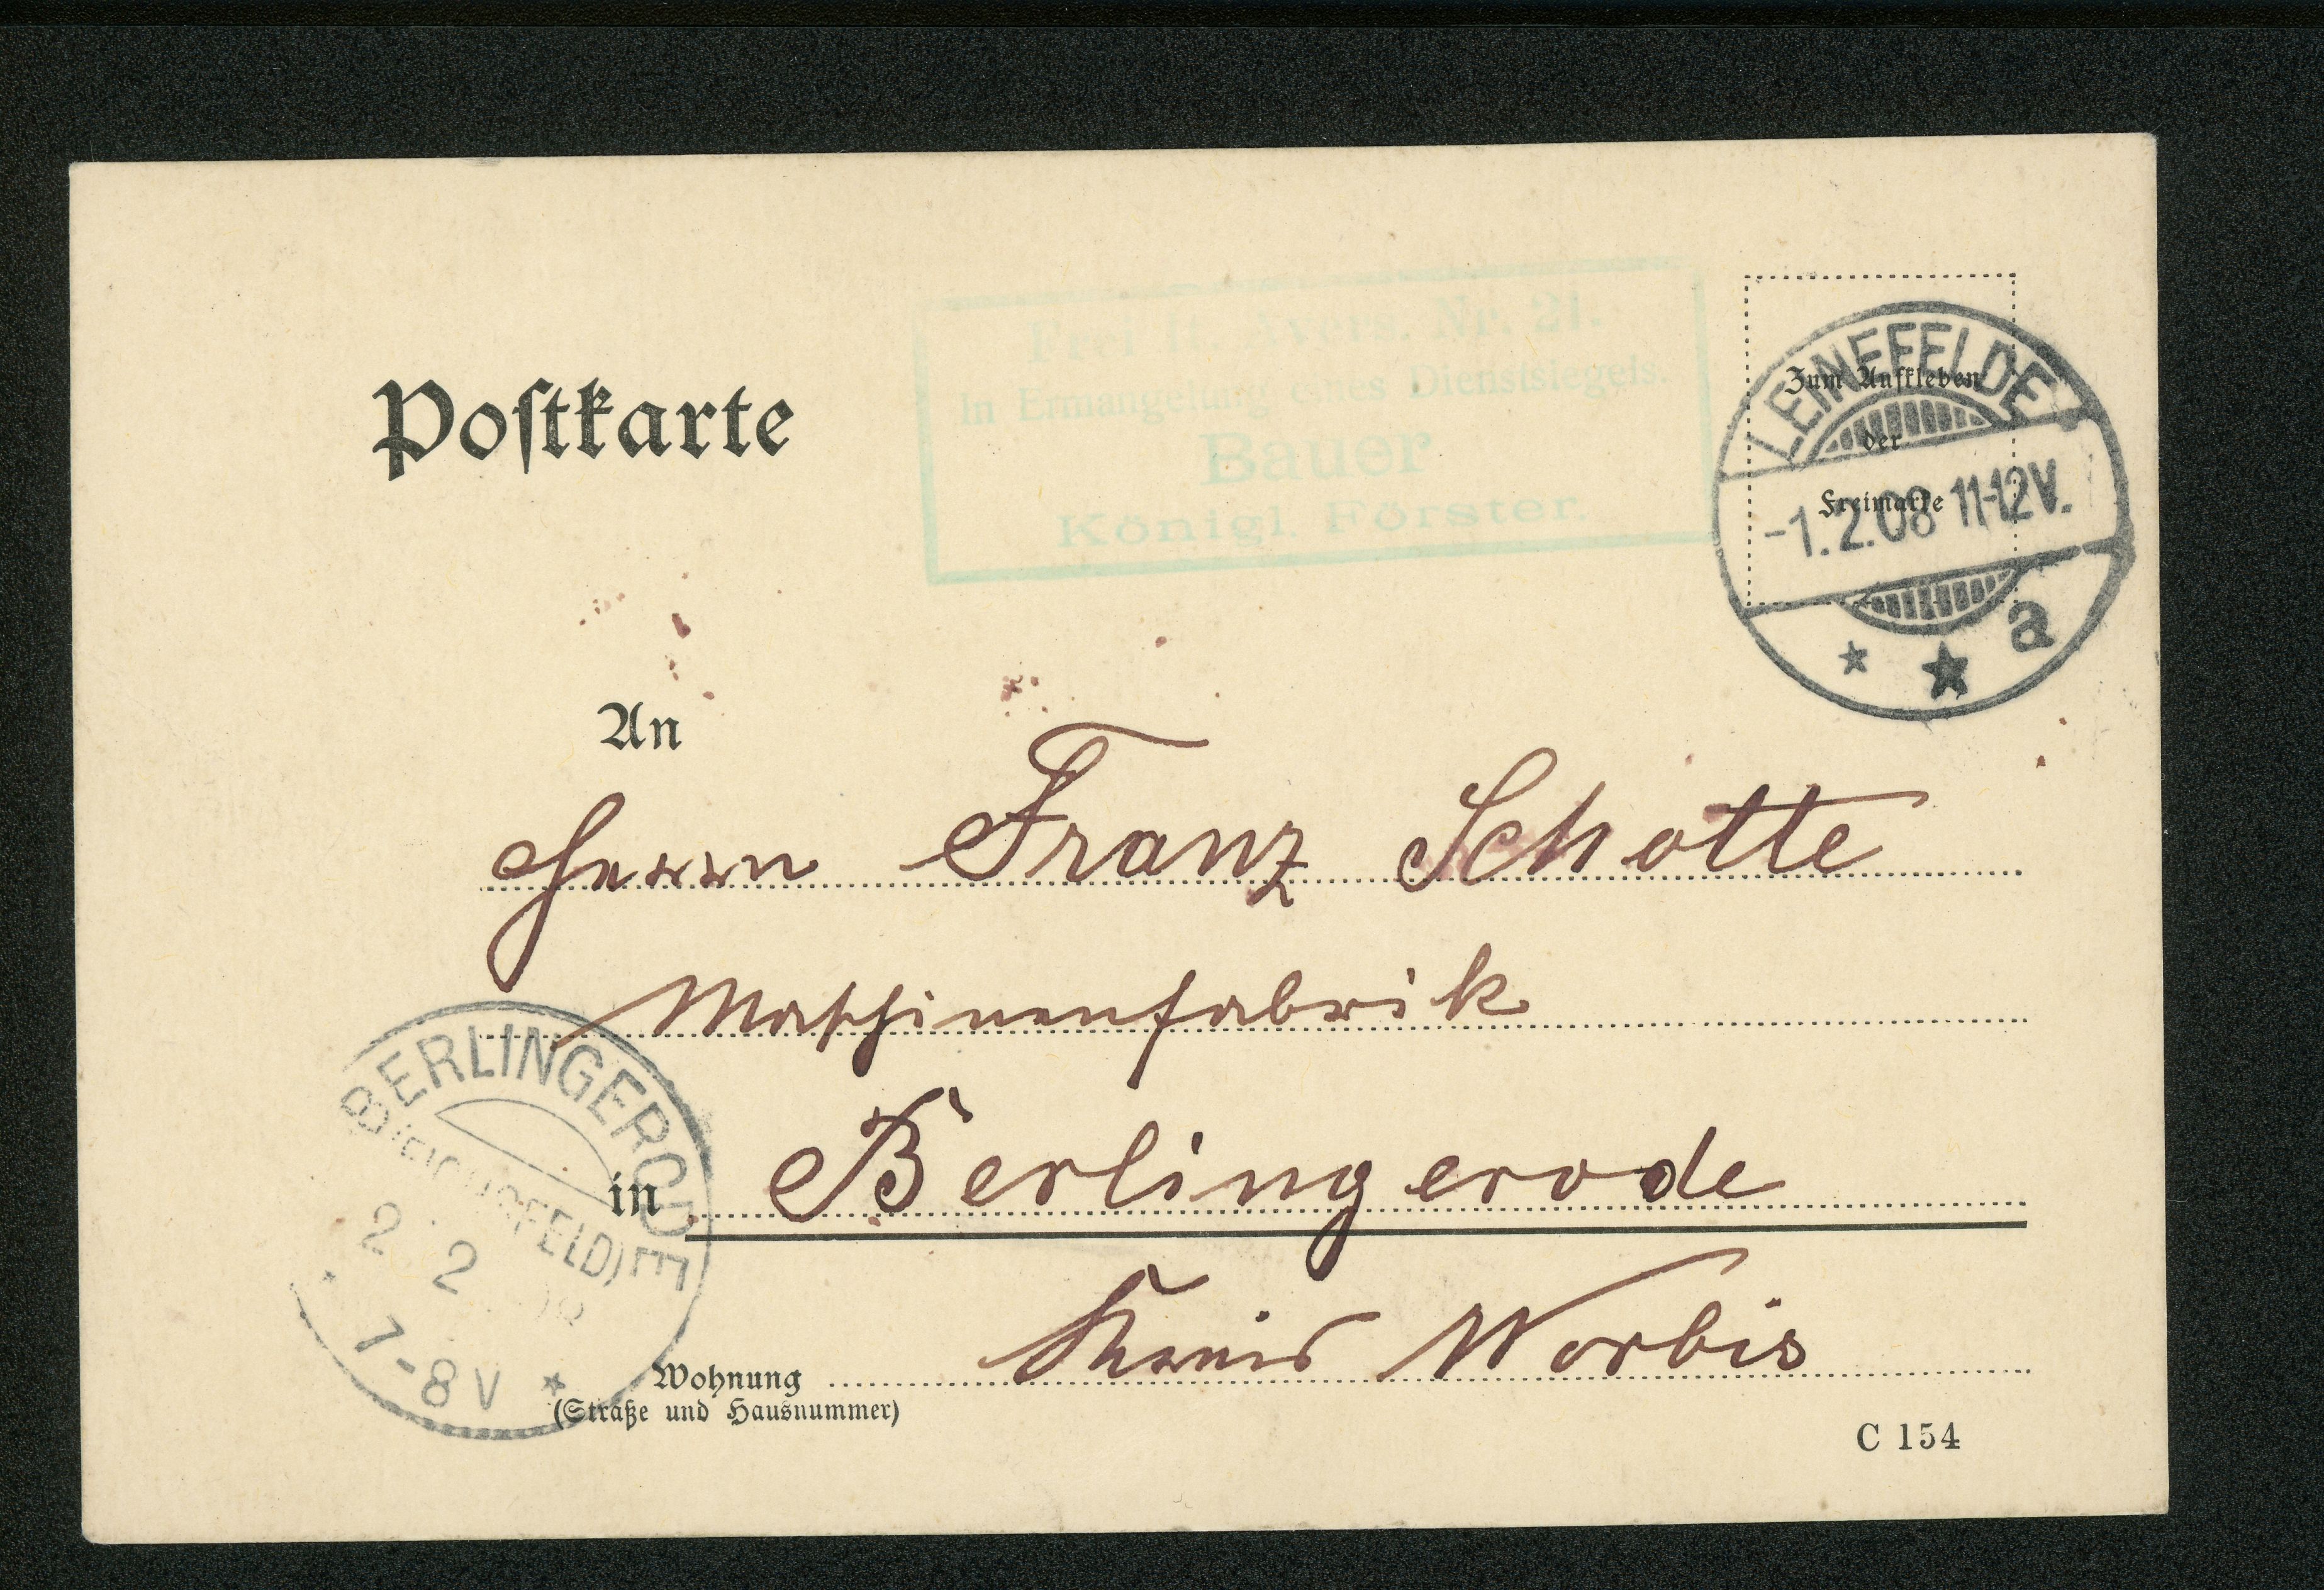 Postkarte
Frei lt. Avers. Nr. 21.
In Ermangelung eines Dienstsiegels.
Bauer
Königl. Förster.
Zum Aufkleben
der
Freimarke
LEINEFELDE
-1.2.08 11-12V.
a
An
Herrn Franz Schotte
Maschinenfabrik
in Berlingerode
Kreis Worbis
Wohnung
(Straße und Hausnummer)
C 154
BERLINGERODE
(EICHSFELD)
2 2 08
7-8V